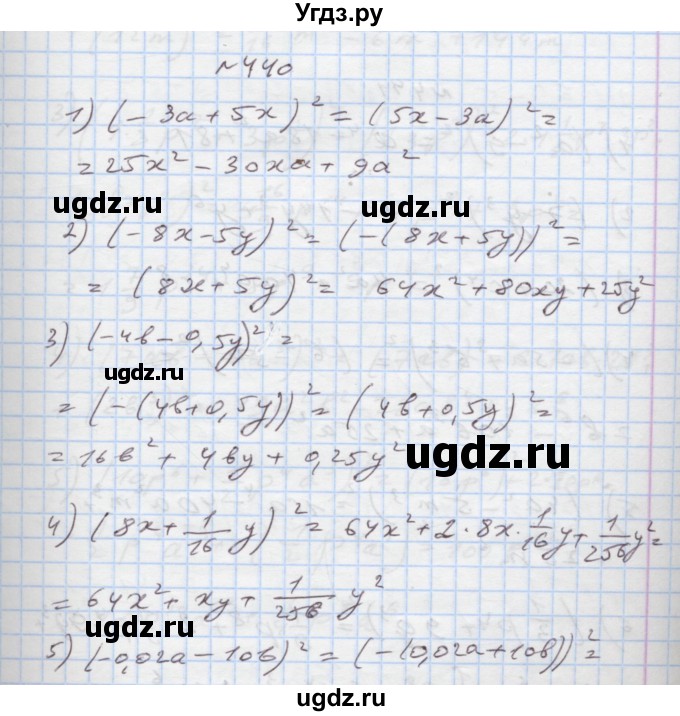 Угдз.ру
№440
1) (-3a+5x)²=(5x-3a)²=
=25x²-30xa+9a²
ugdz.ru ugdz.ru
2) (-8x-5y)²=(-(8x+5y))²=
= (8x+5y)²= 64x²+80xy+25y²
ugdz.ru
3) (-4b-0,5y)²=
ugdz.ru
=(-(4b+0,5y))²=(4b+0,5y)²=
=16b²+4by+0,25y²
ugdz.ru
4) (8x+1/16 y)²=64x²+2·8x·1/16y+1/256y²=
ugdz.ru
=64x²+xy+1/256 y²
ugdz.ru
5) (-0,02a-10b)²=(-(0,02a+10b))²=
ugdz.ru